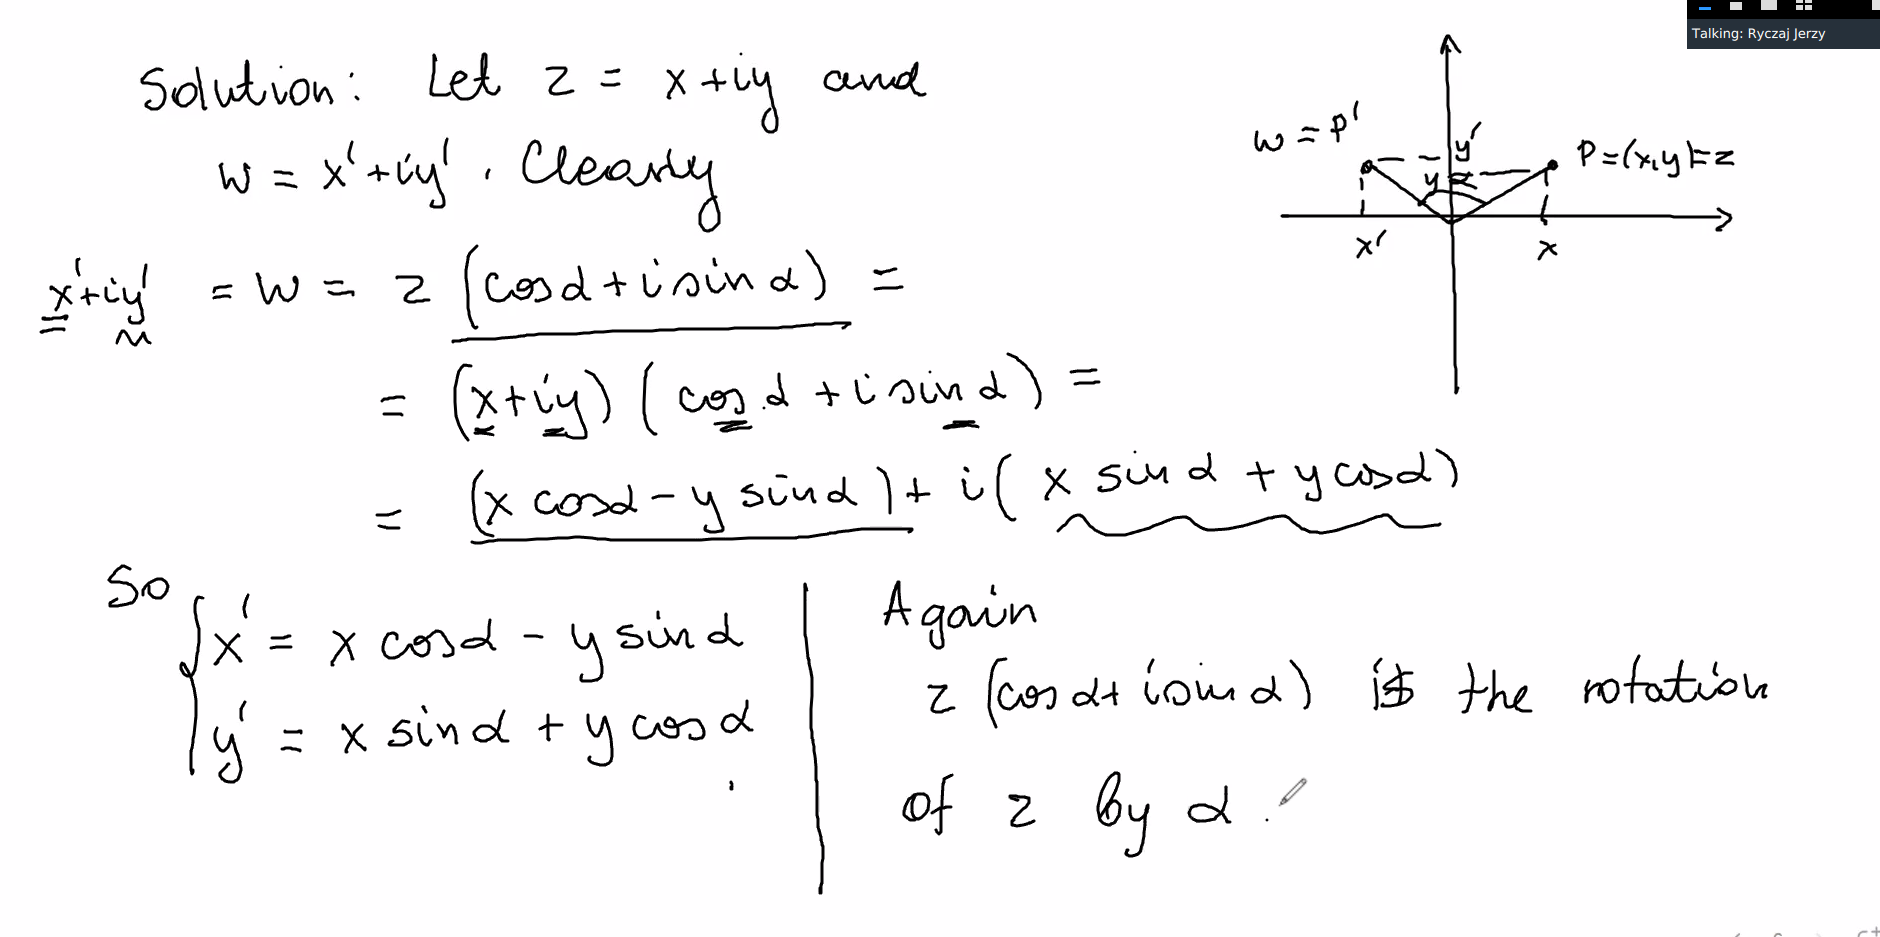 Talking: Ryczaj Jerzy
Solution: Let z = x+iy and
w = x'+iy' . Clearly
x'+iy' = w = z (cosα + i sinα) =
= (x+iy) (cosα + i sinα) =
= (x cosα - y sinα) + i( x sinα + y cosα)
So
x' = x cosα - y sinα
y' = x sinα + y cosα .
Again
z (cosα + i sinα) is the rotation
of z by α .
w = P'
y'
P=(x,y)=z
y
α
x'
x